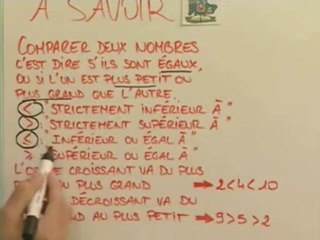 A SAVOIR
COMPARER DEUX NOMBRES
C'EST DIRE S'ILS SONT ÉGAUX,
OU SI L'UN EST PLUS PETIT OU
PLUS GRAND QUE L'AUTRE.
<: "STRICTEMENT INFÉRIEUR À"
>: "STRICTEMENT SUPÉRIEUR À"
≤: "INFÉRIEUR OU ÉGAL À"
≥ SUPÉRIEUR OU ÉGAL À"
L'O CROISSANT VA DU PLUS
PLUS GRAND ⇒ 2<4<10
DÉCROISSANT VA DU
AU PLUS PETIT ⇒ 9>5>2